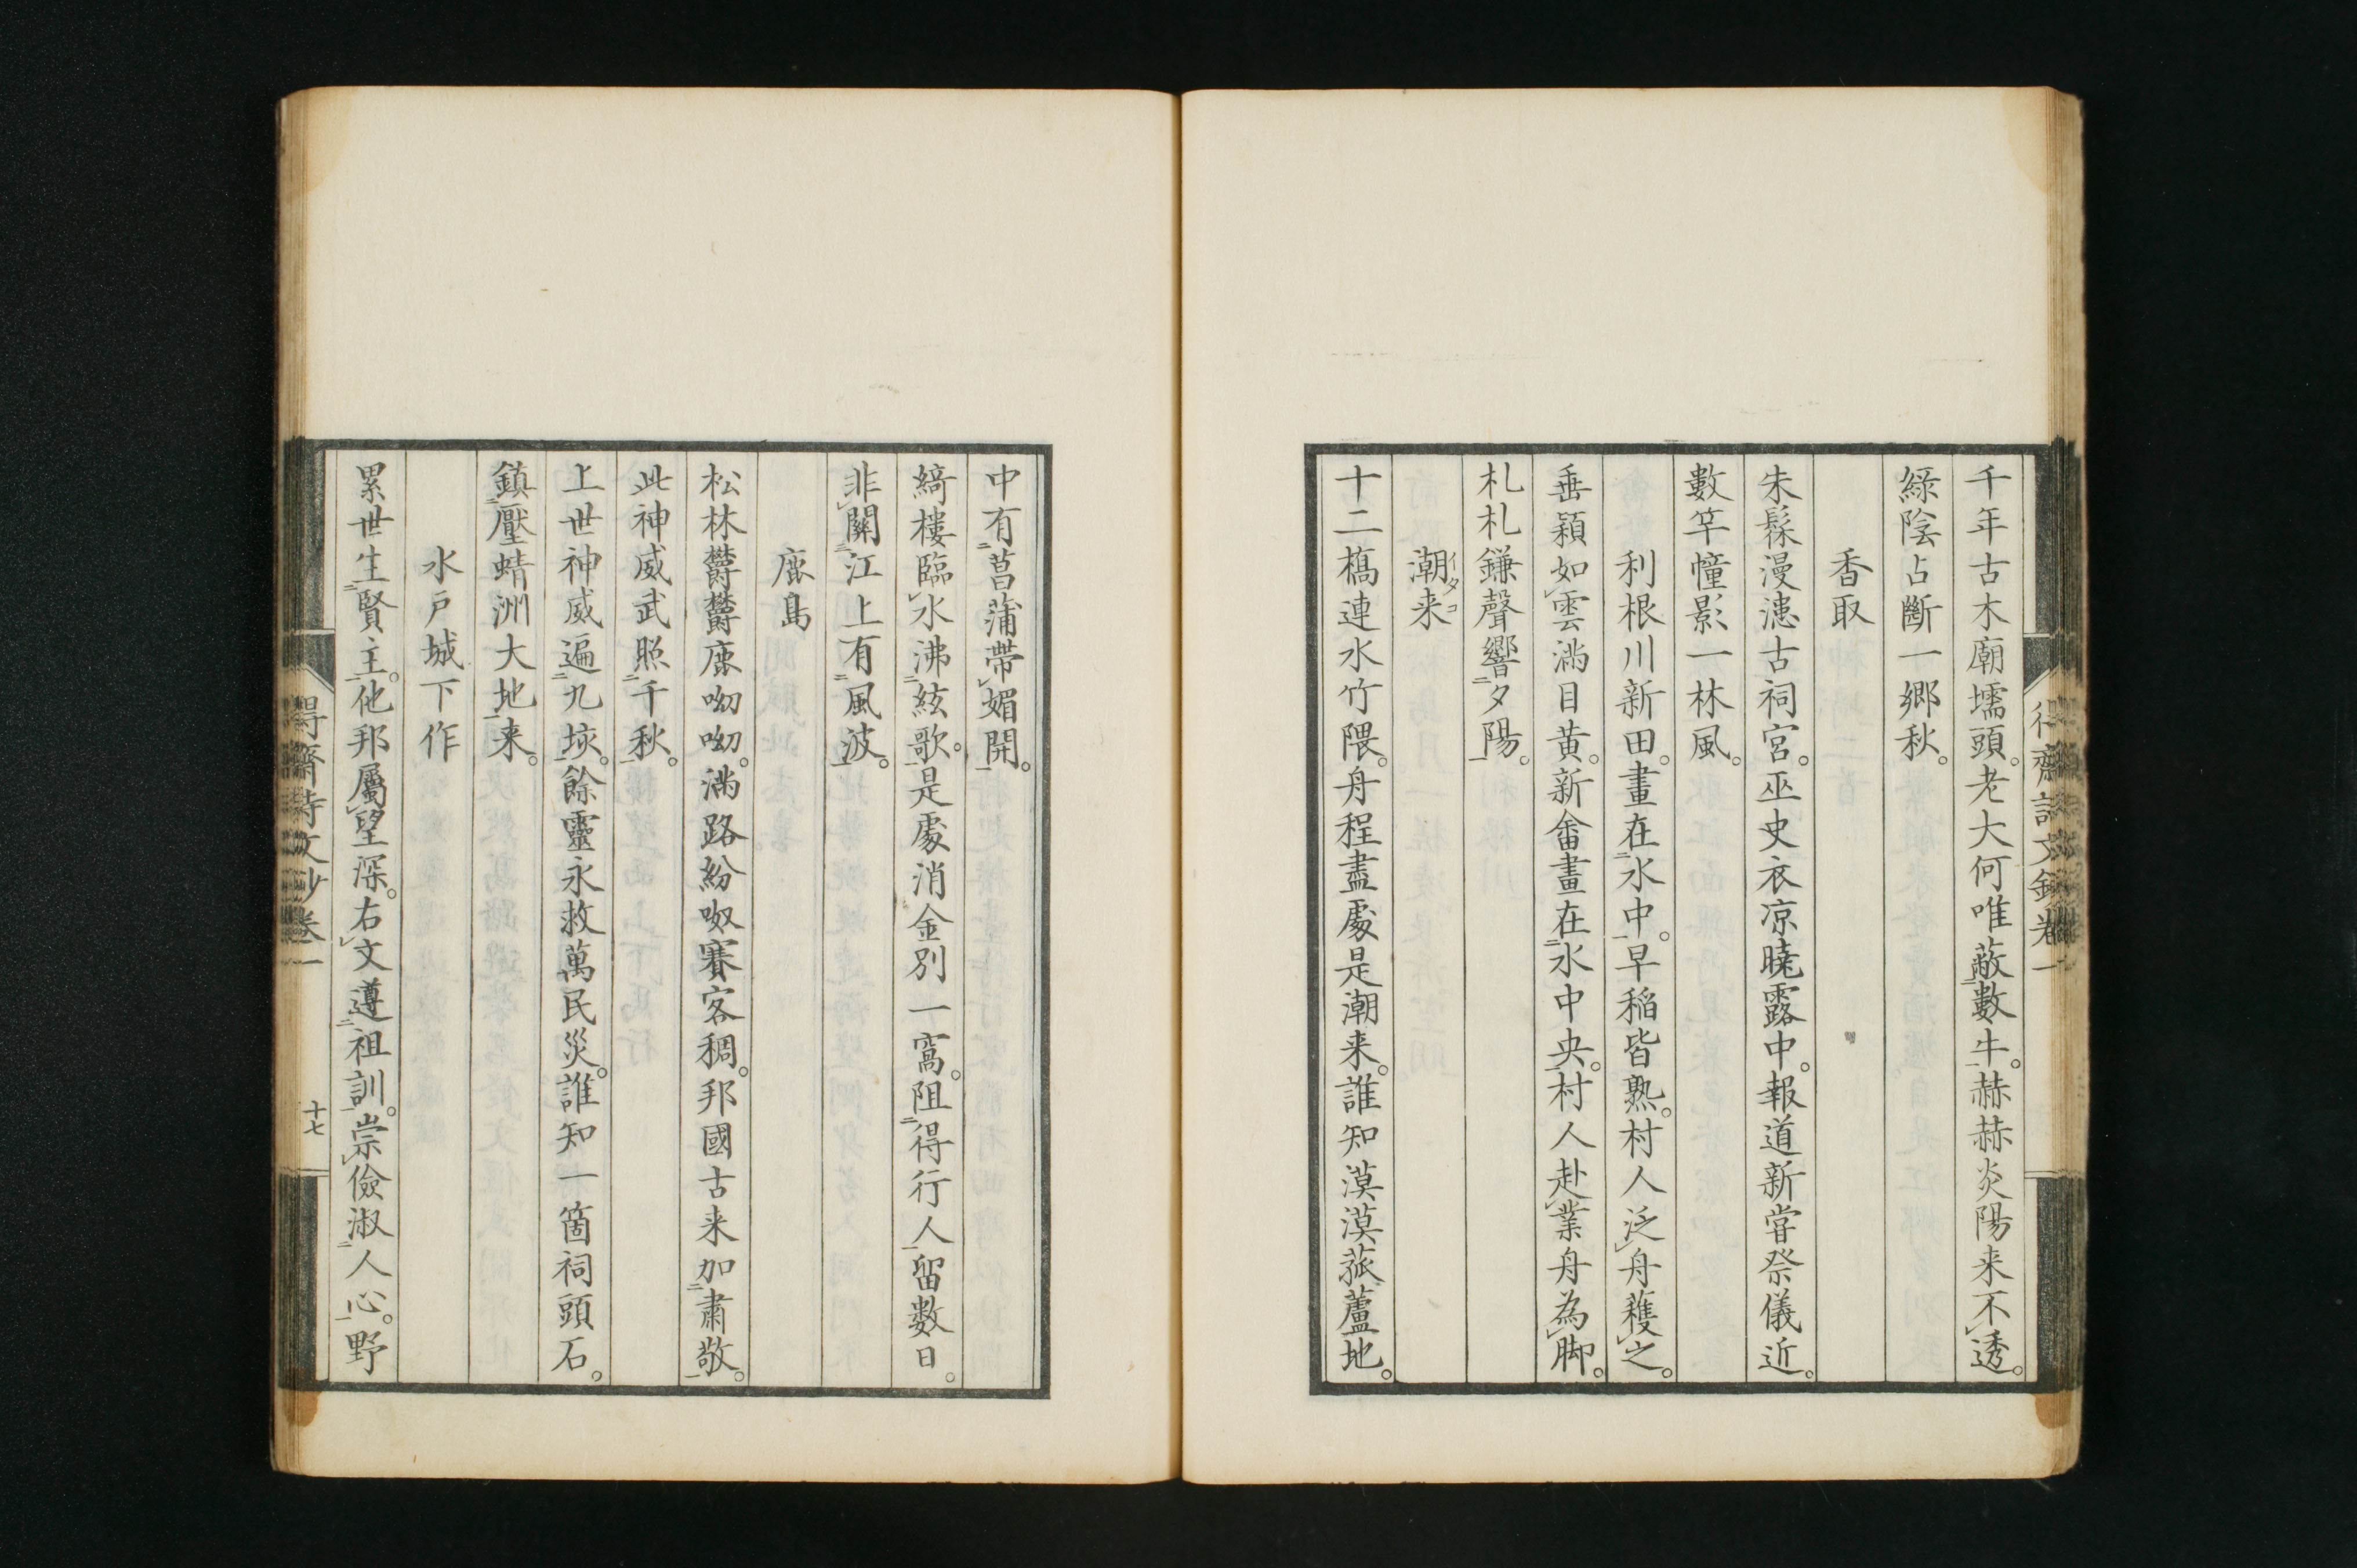 千年古木廟壖頭。老大何唯蔽數牛。赫赫炎陽来不透。
綠陰占斷一鄉秋。
香取
朱髹漫漶古祠宮。巫史衣凉曉露中。報道新甞祭儀近。
數竿幢影一林風。
利根川新田。畫在水中。早稲皆熟。村人泛舟穫之。
垂穎如雲滿目黄。新畬畫在水中央。村人赴業舟為脚。
札札鎌聲響夕陽。
潮来イタコ
十二橋連水竹隈。舟程盡處是潮来。誰知漠漠菰蘆地。
中有菖蒲帶媚開。
綺樓臨水沸絃歌。是處消金別一窩。阻得行人留数日。
非關江上有風波。
鹿島
松林欝欝鹿呦呦。滿路紛呶賽客稠。邦國古来加肅敬。
此神威武照千秋。
上世神威遍九垓。餘靈永救萬民災。誰知一箇祠頭石。
鎮壓蜻洲大地来。
水戸城下作
累世生賢主。他邦屬望深。右文遵祖訓。崇儉淑人心。野
齋詩文鈔卷一
十七